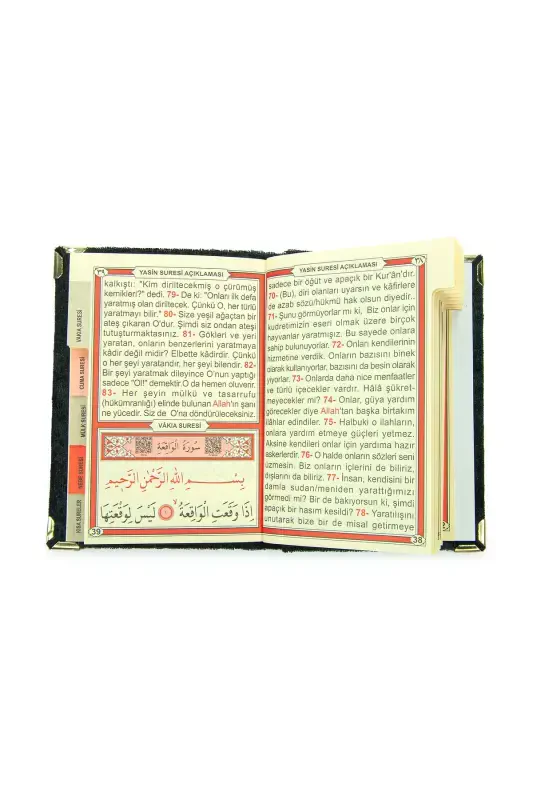 YASİN SURESİ AÇIKLAMASI
٣٨
sadece bir öğüt ve apaçık bir Kur'ân'dır.
70- (Bu), diri olanları uyarsın ve kâfirlere
de azab sözü/hükmü hak olsun diyedir..
71- Şunu görmüyorlar mı ki, Biz onlar için
kudretimizin eseri olmak üzere birçok
hayvanlar yaratmışız. Bu sayede onlara
sahip bulunuyorlar. 72- Onları kendilerinin
hizmetine verdik. Onların bazısını binek
olarak kullanıyorlar, bazısını da besin olarak
yiyorlar. 73- Onlarda daha nice menfaatler
ve türlü içecekler vardır. Hâlâ şükret-
meyecekler mi? 74- Onlar, güya yardım
görecekler diye Allah'tan başka birtakım
ilâhlar edindiler. 75- Halbuki o ilahların,
onlara yardım etmeye güçleri yetmez.
Aksine kendileri onlar için yardıma hazır
askerlerdir. 76- O halde onların sözleri seni
üzmesin. Biz onların içlerini de biliriz,
dışlarını da biliriz. 77- İnsan, kendisini bir
damla sudan/meniden yarattığımızı
görmedi mi? Bir de bakıyorsun ki, şimdi
apaçık bir hasım kesildi? 78- Yaratılışını
unutarak bize bir de misal getirmeye
38
٣٩
YASİN SURESİ AÇIKLAMASI
kalkıştı: "Kim diriltecekmiş o çürümüş
kemikleri?" dedi. 79- De ki: "Onları ilk defa
yaratmış olan diriltecek. Çünkü O, her türlü
yaratmayı bilir." 80- Size yeşil ağaçtan bir
ateş çıkaran O'dur. Şimdi siz ondan ateşi
tutuşturmaktasınız. 81- Gökleri ve yeri
yaratan, onların benzerlerini yaratmaya
kâdir değil midir? Elbette kâdirdir. Çünkü
o her şeyi yaratandır, her şeyi bilendir. 82-
Bir şeyi yaratmak dileyince O'nun yaptığı
sadece "Ol!" demektir O da hemen oluverir.
83- Her şeyin mülkü ve tasarrufu
(hükümranlığı) elinde bulunan Allah'ın şanı
ne yücedir. Siz de O'na döndürüleceksiniz.
VÂKIA SURESİ
سُورَةُ الْوَاقِعَةِ
بِسْمِ اللّٰهِ الرَّحْمٰنِ الرَّحِيمِ
اِذَا وَقَعَتِ الْوَاقِعَةُ ۙ ١ لَيْسَ لِوَقْعَتِهَا
39
VAKIA SURESİ
CUMA SURESİ
MÜLK SURESİ
NEBE SURESİ
KISA SURELER